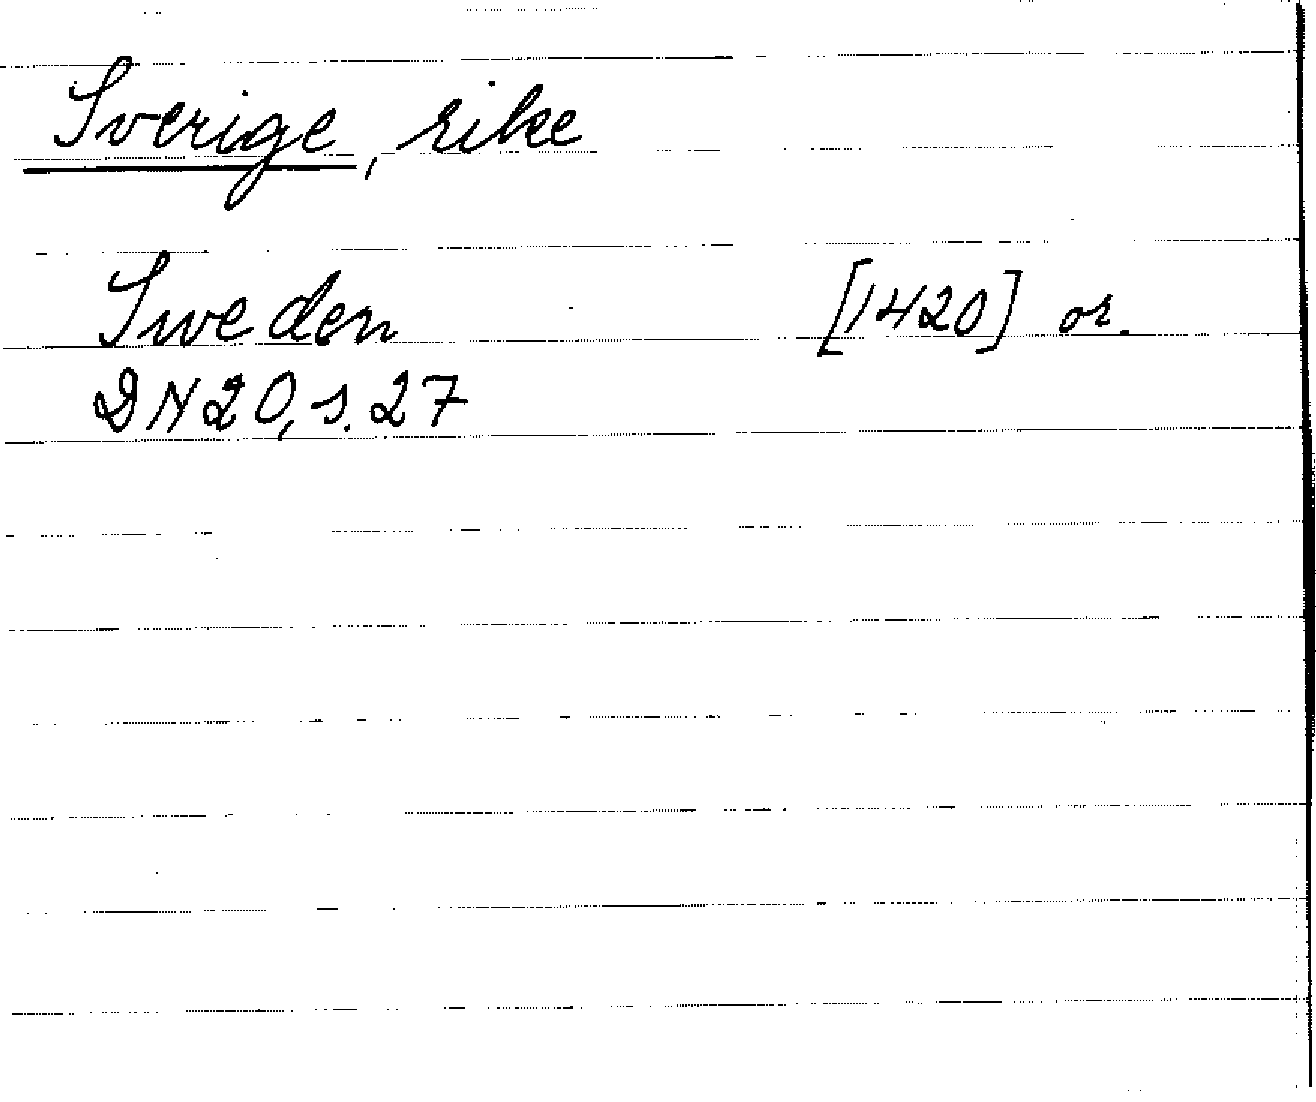 Sverige, rike
Sweden [1420] or.
DN 20, s. 27